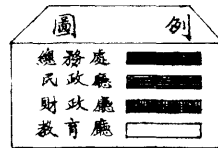 圖例
總務處
民政廳
財政廳
教育廳